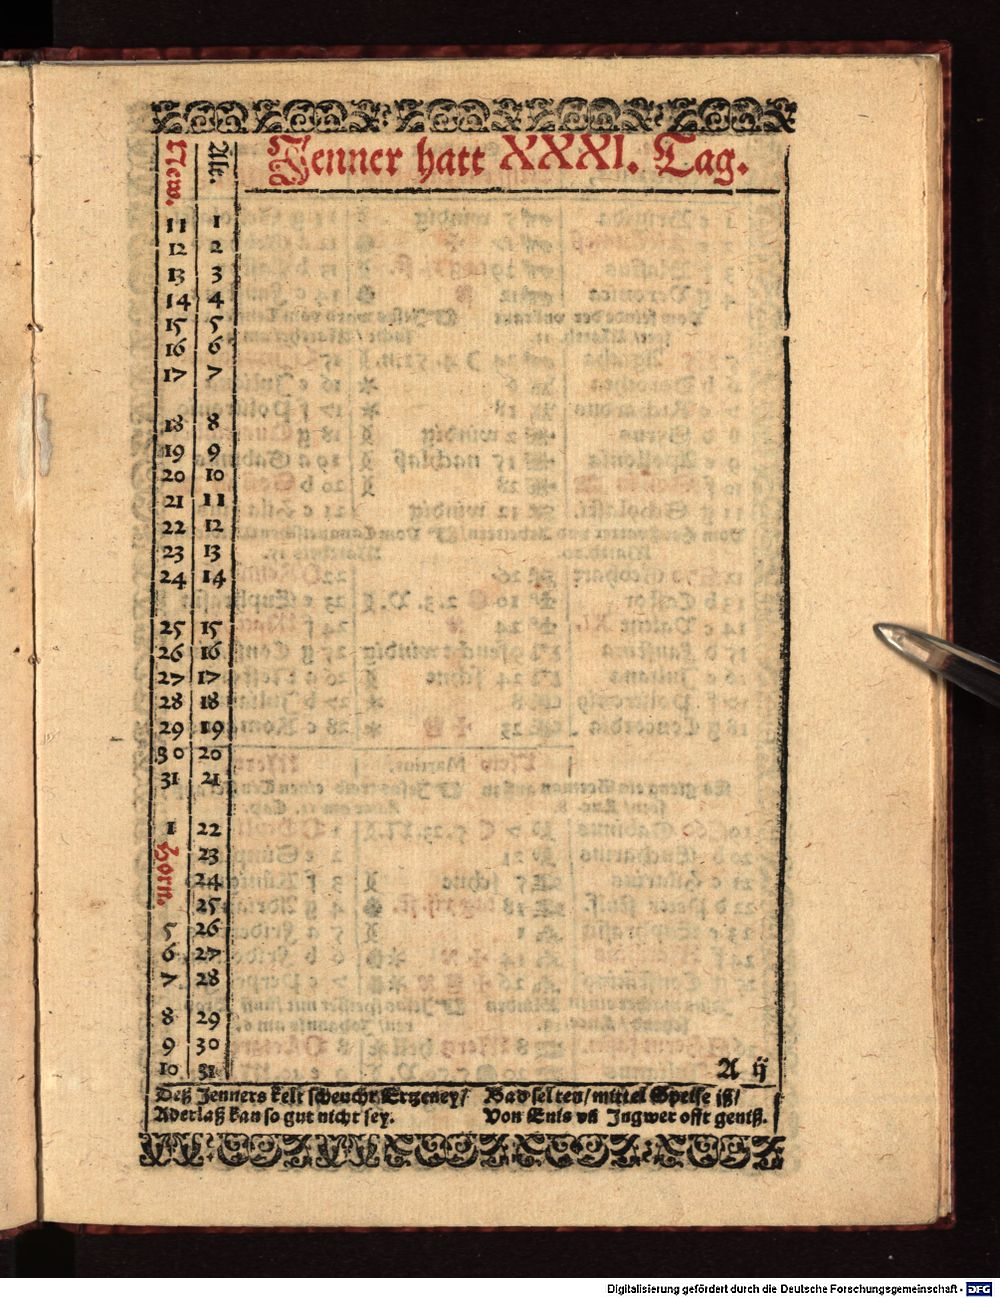 Jenner hatt XXXI. Tag.
New. Alt.
11 1
12 2
13 3
14 4
15 5
16 6
17 7
18 8
19 9
20 10
21 11
22 12
23 13
24 14
25 15
26 16
27 17
28 18
29 19
30 20
31 21
1 22
Horn. 23
24
25
5 26
6 27
7 28
8 29
9 30
10 31
A ij
Deß Jenners kelt scheucht Ertzeney/ Bad selten/ mittel Speise iß/
Aderlaß kan so gut nicht sey. Von Enis vñ Ingwer offt geniß.
Digitalisierung gefördert durch die Deutsche Forschungsgemeinschaft - DFG